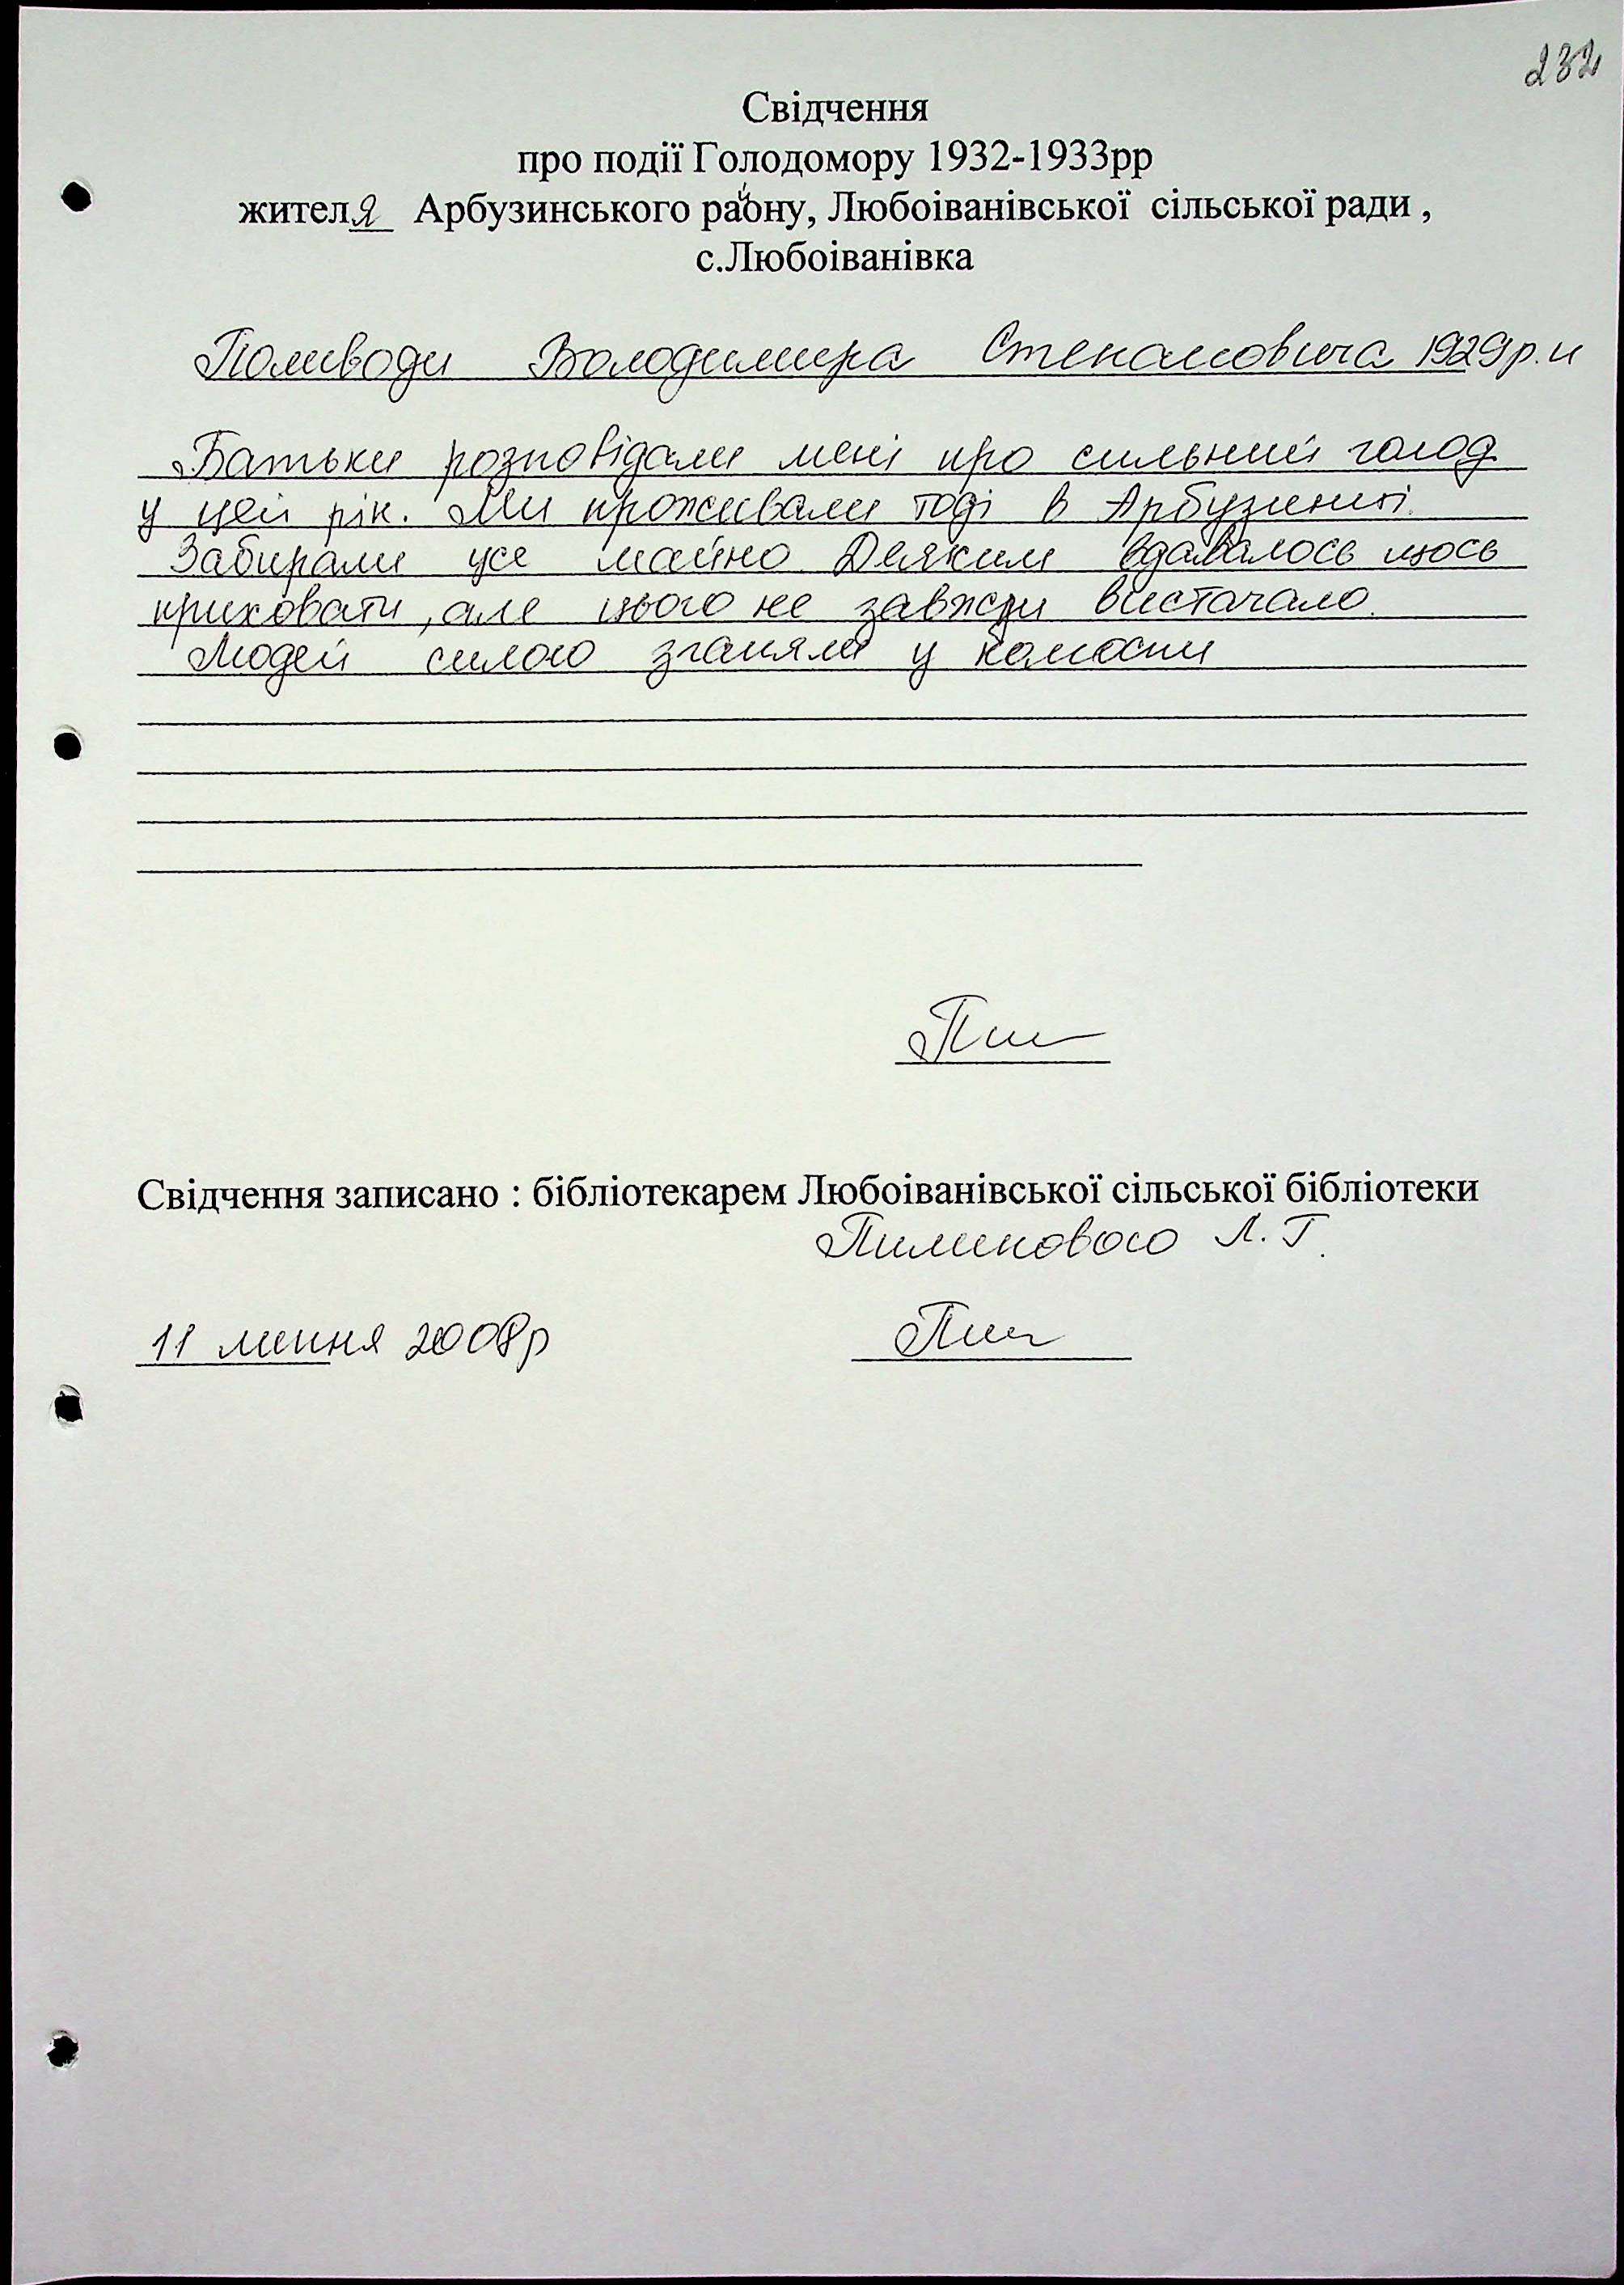 232
Свідчення
про події Голодомору 1932-1933рр
жителя Арбузинського району, Любоіванівської сільської ради ,
с.Любоіванівка
Поливоди Володимира Степановича 1929р.н
Батьки розповідали мені про сильний голод
у цей рік. Ми проживали тоді в Арбузинці.
Забирали усе майно. Деяким вдавалось щось
приховати, але цього не завжди вистачало.
Людей силою зганяли у колоспи
Свідчення записано : бібліотекарем Любоіванівської сільської бібліотеки
Пилиповою Л. Г.
11 липня 2008р